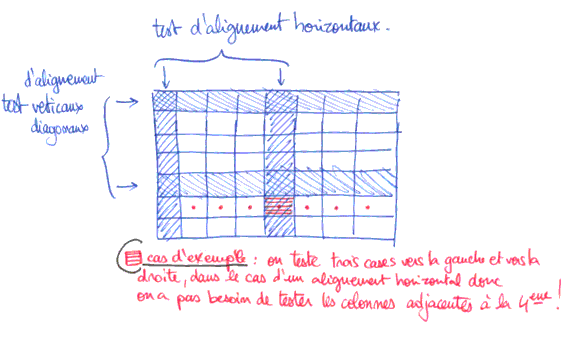 test d'alignement horizontaux.
d'alignement
test veticaux
diagonaux
cas d'exemple : on teste trois cases vers la gauche et vers la
droite, dans le cas d'un alignement horizontal donc
on a pas besoin de tester les colonnes adjacentes à la 4eme !